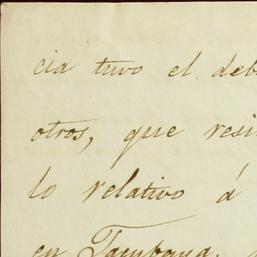 cia tuvo el deb
otros, que resi
lo relativo á
en